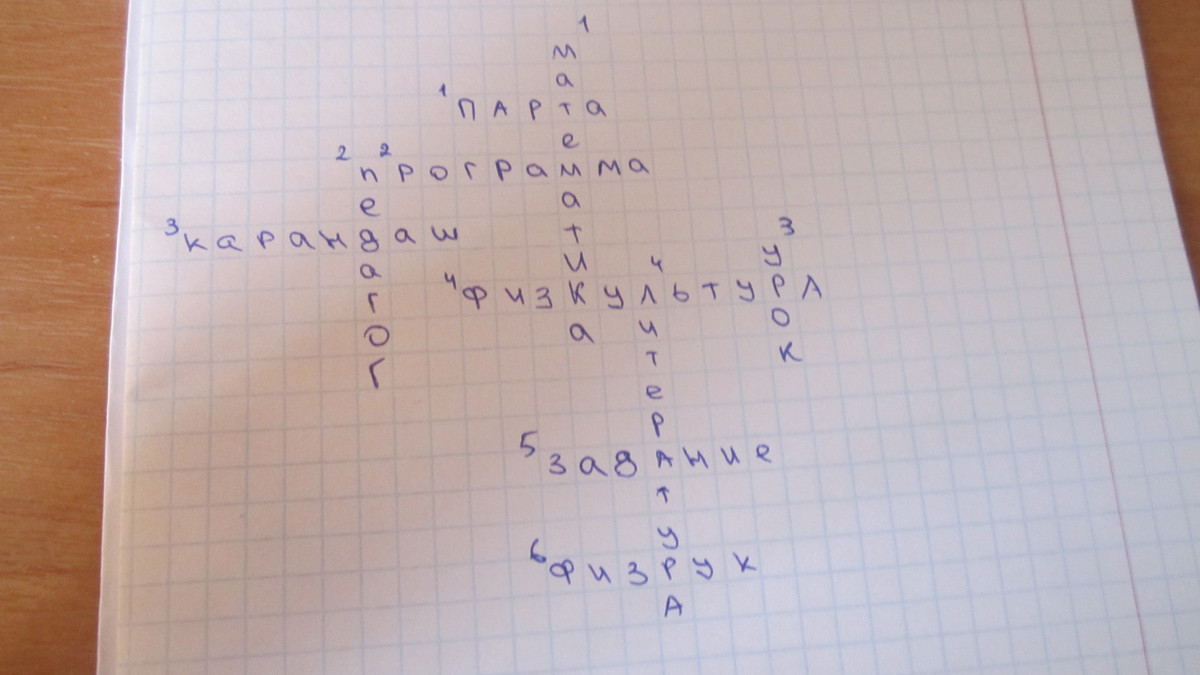 1
м
а
1 ПАРТа
е
2 2 пРОГРамма
е а
3 карандаш т 3
а и 4 у
г 4 физКУльтуРА
о а и О
г т К
е
Р
5 задАние
т
у
6 физРук
А